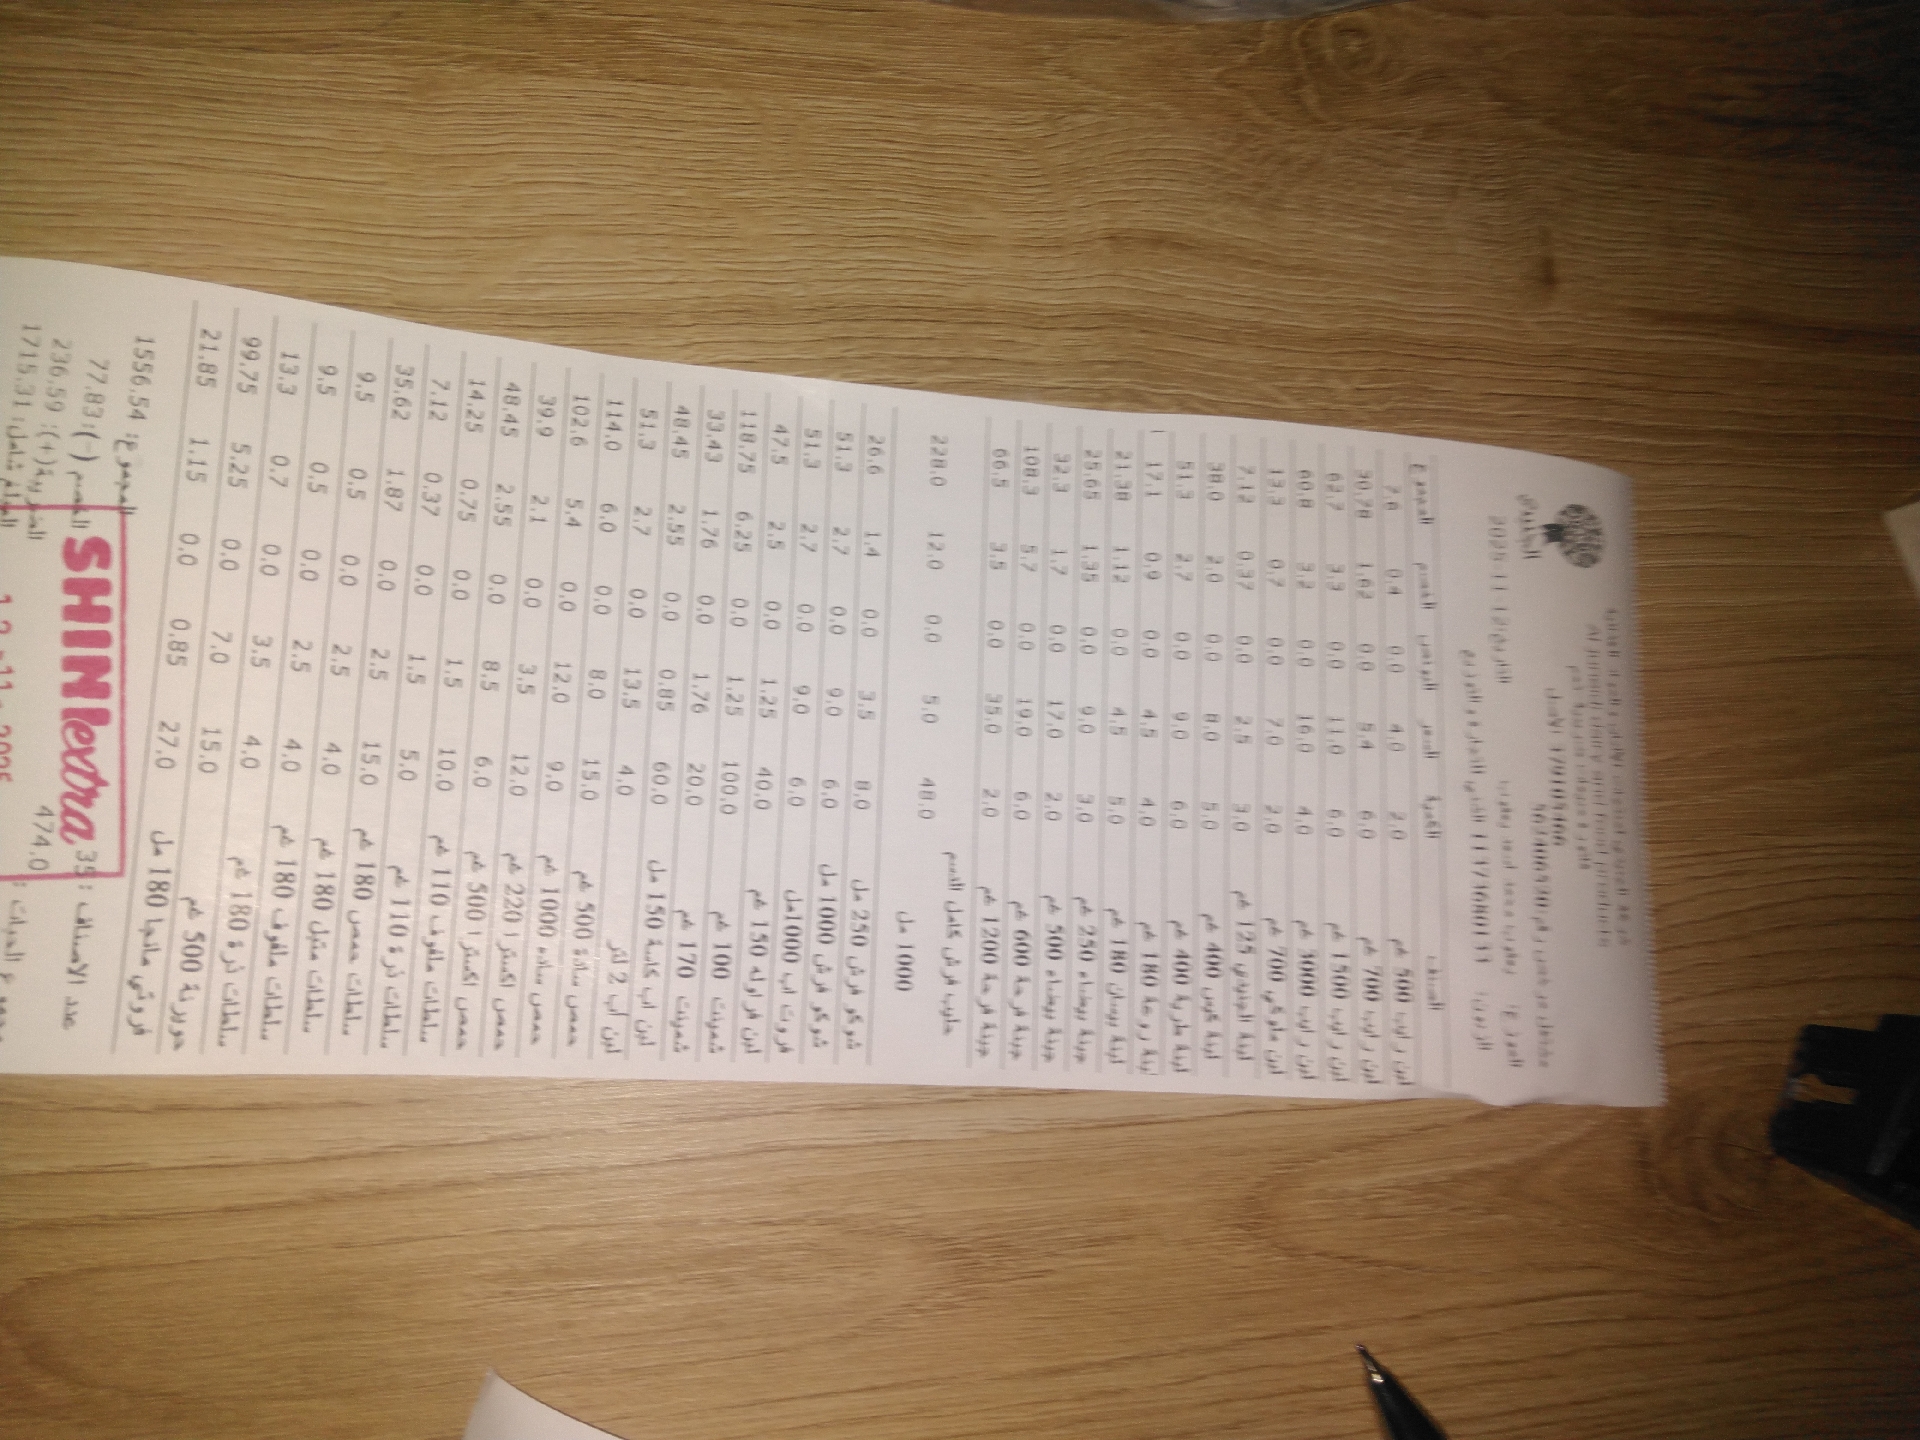 الجنيدي
Al Juneidi dairy and food products
562406930
التاريخ: 12-11-2025
الصنف الكمية السعر البونص الخصم المجموع
لبن رايب 500 غم 2.0 4.0 0.0 0.4 7.6
لبن رايب 700 غم 6.0 5.4 0.0 1.62 30.78
لبن رايب 1500 غم 6.0 11.0 0.0 3.3 62.7
لبن رايب 3000 غم 4.0 16.0 0.0 3.2 60.8
لبن ملوكي 700 غم 2.0 7.0 0.0 0.7 13.3
لبنة الجنيدي 125 غم 3.0 2.5 0.0 0.37 7.12
لبنة كوب 400 غم 5.0 8.0 0.0 2.0 38.0
لبنة طرية 400 غم 6.0 9.0 0.0 2.7 51.3
لبنة 180 غم 4.0 4.5 0.0 0.9 17.1
لبنة 180 غم 5.0 4.5 0.0 1.12 21.38
جبنة بيضاء 250 غم 3.0 9.0 0.0 1.35 25.65
جبنة بيضاء 500 غم 2.0 17.0 0.0 1.7 32.3
جبنة فرحة 600 غم 6.0 19.0 0.0 5.7 108.3
جبنة فرحة 1200 غم 2.0 35.0 0.0 3.5 66.5
حليب فرش كامل الدسم
1000 مل 48.0 5.0 0.0 12.0 228.0
شوكو فرش 250 مل 8.0 3.5 0.0 1.4 26.6
شوكو فرش 1000 مل 6.0 9.0 0.0 2.7 51.3
فروت اب 1000مل 6.0 9.0 0.0 2.7 51.3
لبن فراوله 150 غم 40.0 1.25 0.0 2.5 47.5
شمينت 100 غم 100.0 1.25 0.0 6.25 118.75
شمينت 170 غم 20.0 1.76 0.0 1.76 33.43
لبن اب كاسة 150 مل 60.0 0.85 0.0 2.55 48.45
لبن أب 2 لتر 4.0 13.5 0.0 2.7 51.3
حمص سادة 500 غم 15.0 8.0 0.0 6.0 114.0
حمص سادة 1000 غم 9.0 12.0 0.0 5.4 102.6
حمص اكسترا 220 غم 12.0 3.5 0.0 2.1 39.9
حمص اكسترا 500 غم 6.0 8.5 0.0 2.55 48.45
سلطات ملفوف 110 غم 10.0 1.5 0.0 0.75 14.25
سلطات ذرة 110 غم 5.0 1.5 0.0 0.37 7.12
سلطات حمص 180 غم 15.0 2.5 0.0 1.87 35.62
سلطات متبل 180 غم 4.0 2.5 0.0 0.5 9.5
سلطات ملفوف 180 غم 4.0 2.5 0.0 0.5 9.5
سلطات ذرة 180 غم 4.0 3.5 0.0 0.7 13.3
500 غم 15.0 7.0 0.0 5.25 99.75
فروتي مانجا 180 مل 27.0 0.85 0.0 1.15 21.85
المجموع: 1556.54
عدد الاصناف : 35 الخصم (-) :77.83
474.0 الضريبة(+): 236.59
المبلغ شامل: 1715.31
SHINI extra